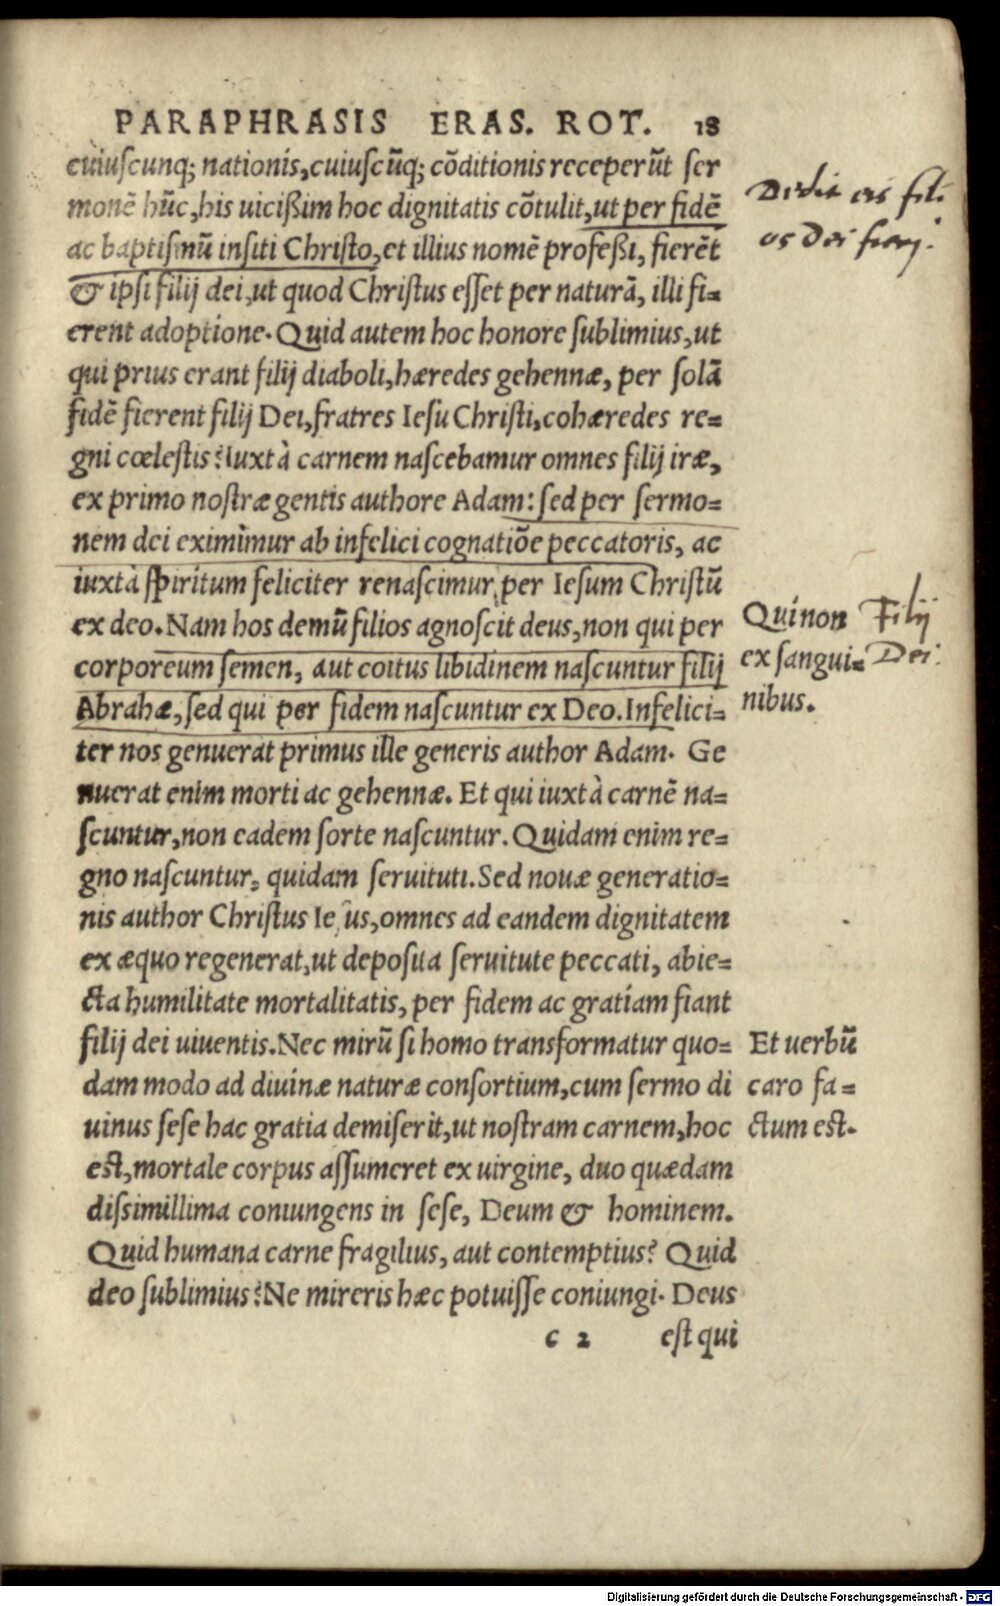 PARAPHRASIS ERAS. ROT. 18
cuiuſcunq; nationis, cuiuſcūq; cōditionis receperūt ſer
monē hūc, his uicißim hoc dignitatis cōtulit, ut per fidē
ac baptiſmū inſiti Chriſto, et illius nomē profeßi, fierēt
& ipſi filij dei, ut quod Chriſtus eſſet per naturā, illi fi=
erent adoptione. Quid autem hoc honore ſublimius, ut
qui prius erant filij diaboli, hæredes gehennæ, per ſolā
fidē fierent filij Dei, fratres Ieſu Chriſti, cohæredes re=
gni cœleſtis? Iuxtà carnem naſcebamur omnes filij iræ,
ex primo noſtræ gentis authore Adam: ſed per ſermo=
nem dei eximimur ab infelici cognatiōe peccatoris, ac
iuxtà ſpiritum feliciter renaſcimur per Ieſum Chriſtū
ex deo. Nam hos demū filios agnoſcit deus, non qui per
corporeum ſemen, aut coitus libidinem naſcuntur filij
Abrahæ, ſed qui per fidem naſcuntur ex Deo. Infelici=
ter nos genuerat primus ille generis author Adam. Ge
nuerat enim morti ac gehennæ. Et qui iuxtà carnē na=
ſcuntur, non eadem ſorte naſcuntur. Quidam enim re=
gno naſcuntur, quidam ſeruituti. Sed nouæ generatio=
nis author Chriſtus Ieſus, omnes ad eandem dignitatem
ex æquo regenerat, ut depoſita ſeruitute peccati, abie=
cta humilitate mortalitatis, per fidem ac gratiam fiant
filij dei uiuentis. Nec mirū ſi homo transformatur quo=
dam modo ad diuinæ naturæ conſortium, cum ſermo di
uinus ſeſe hac gratia demiſerit, ut noſtram carnem, hoc
eſt, mortale corpus aſſumeret ex uirgine, duo quædam
diſsimillima coniungens in ſeſe, Deum & hominem.
Quid humana carne fragilius, aut contemptius? Quid
deo ſublimius? Ne mireris hæc potuiſſe coniungi. Deus
c 2 eſt qui
Dedit eis fili
os Dei fieri.
Qui non
ex ſangui=
nibus.
Filij
Dei.
Et uerbū
caro fa=
ctum eſt.
Digitalisierung gefördert durch die Deutsche Forschungsgemeinschaft - DFG